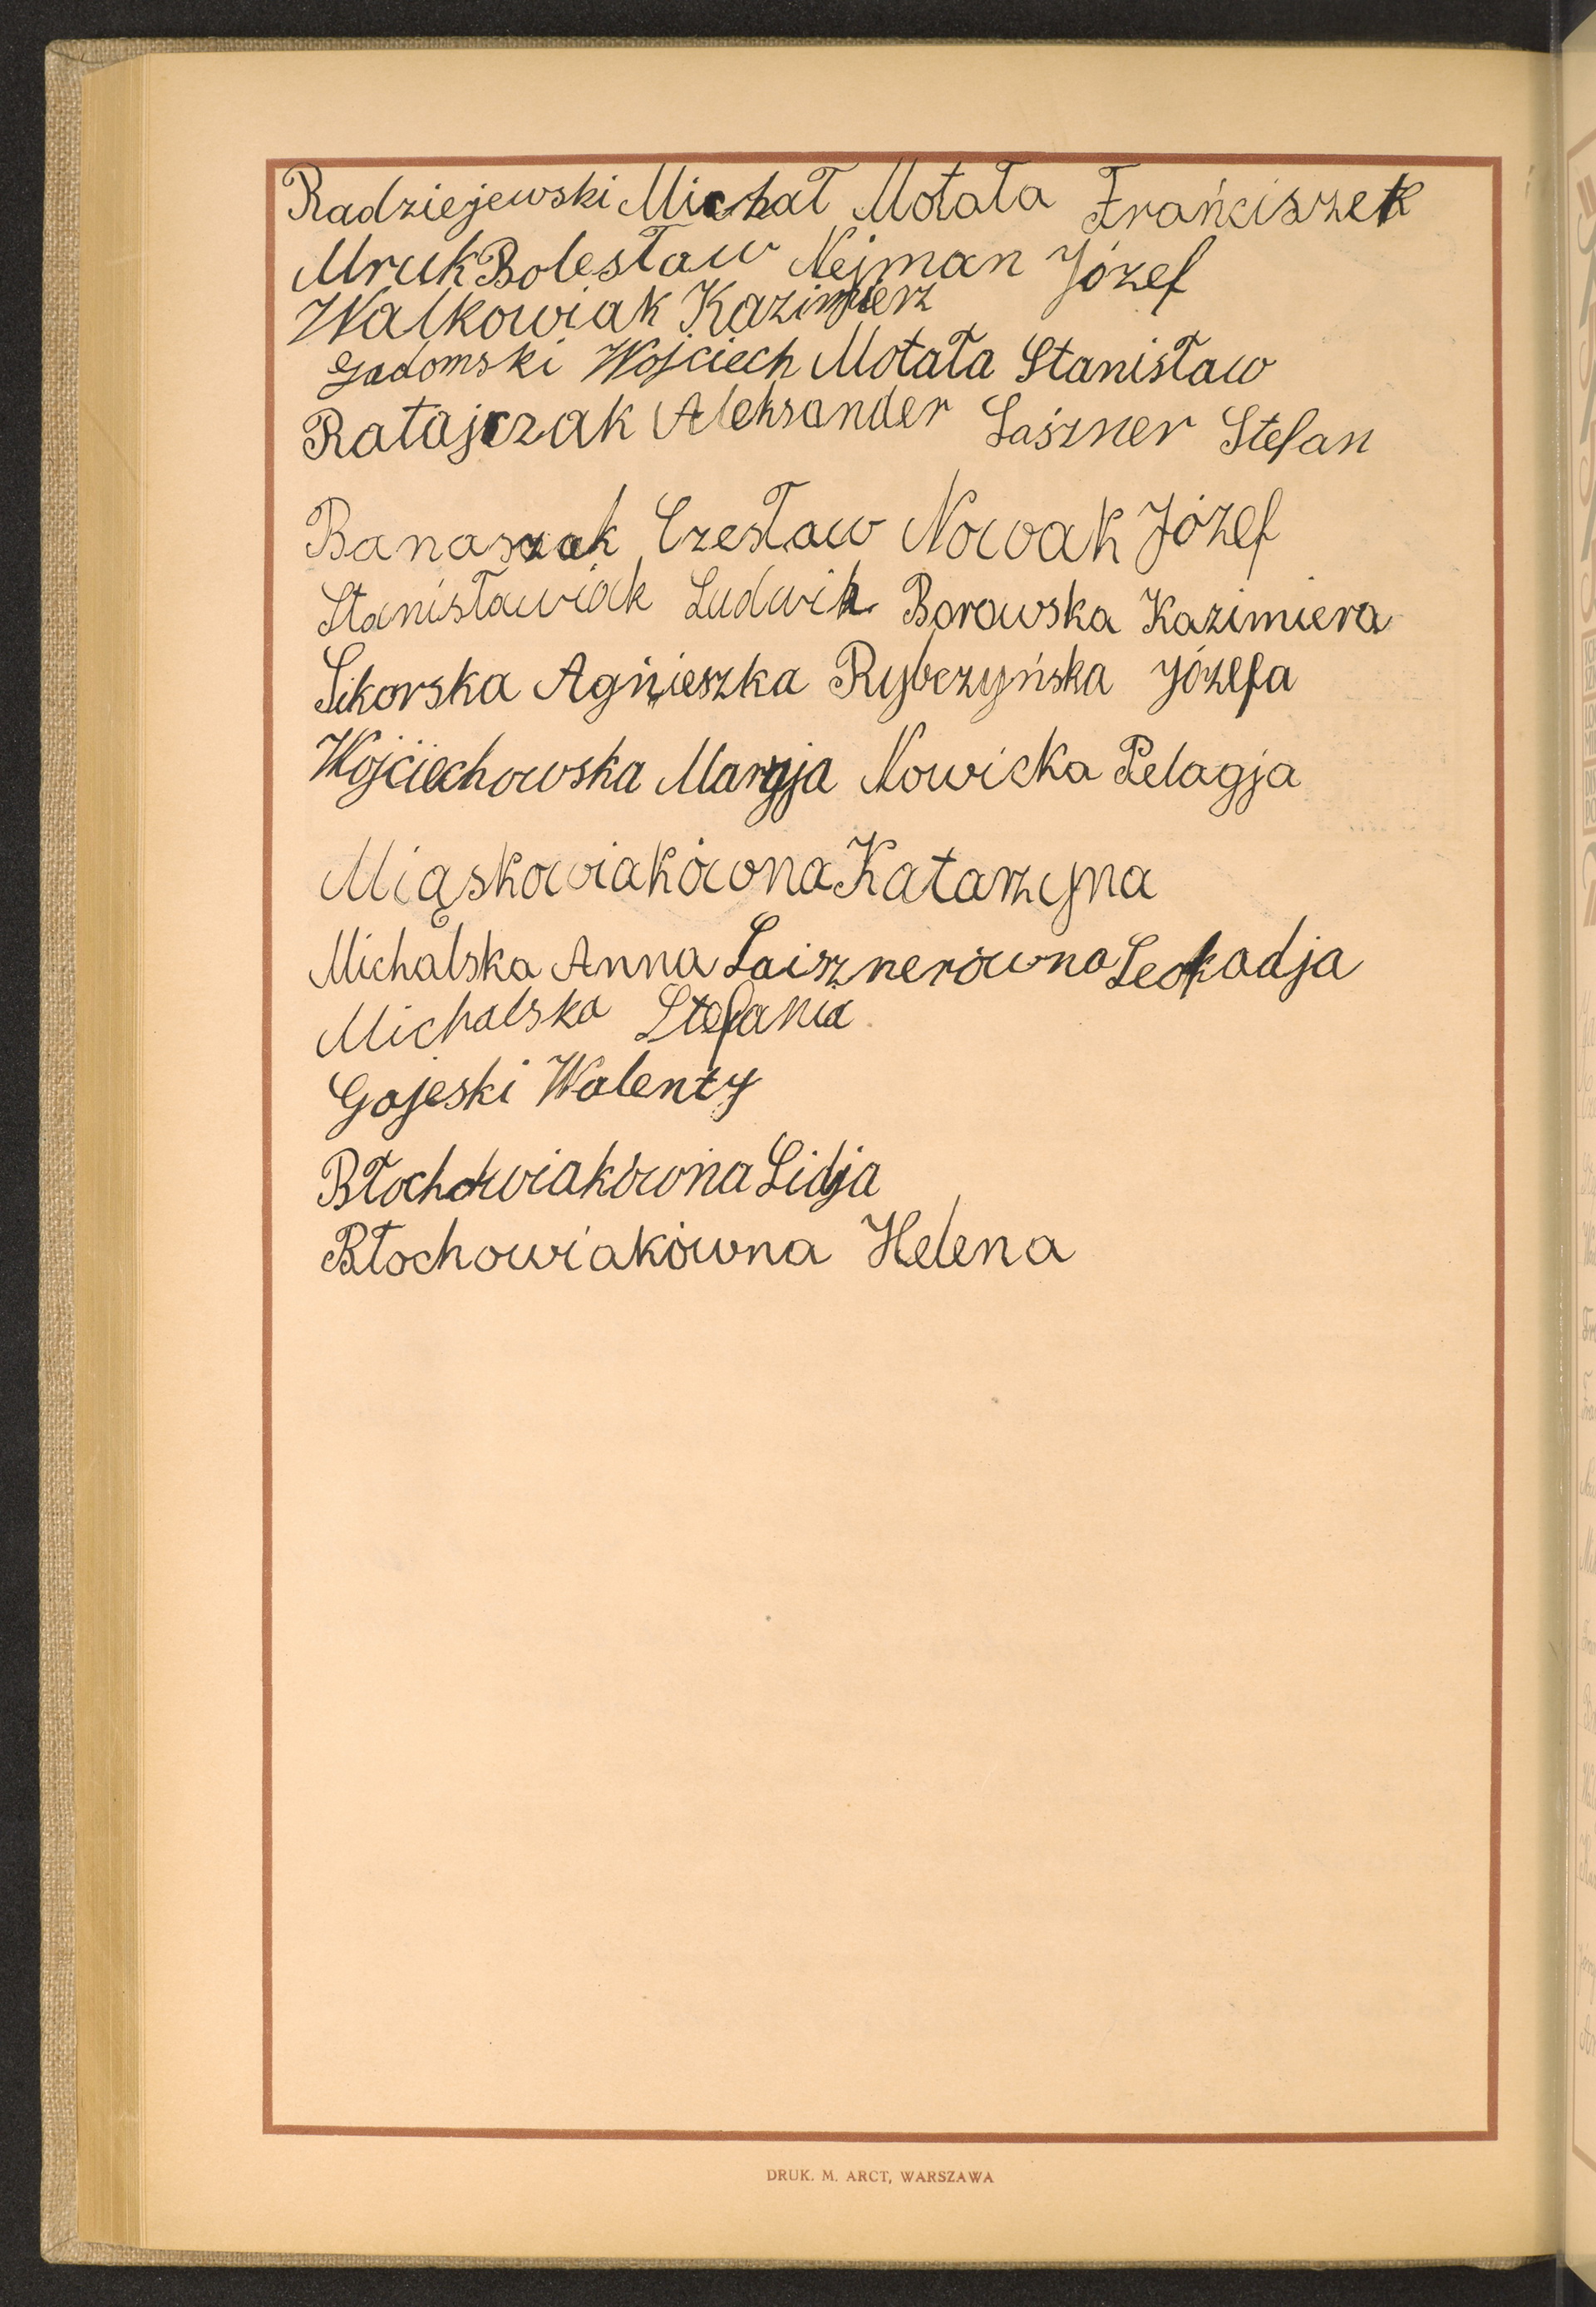 Radziejewski Michał Motała Frańciszek
Mruk Bolesław Nejman Józef
Walkowiak Kazimierz
Gadomski Wojciech Motała Stanisław
Ratajczak Aleksander Laśzner Stefan
Banaszak Czesław Nowak Józef
Stanisławiak Ludwik Borowska Kazimiera
Sikorska Agnieszka Rybczyńska Józefa
Wojciechowska Maryja Nowicka Pelagja
Miąskowiakówna Katarzyna
Michalska Anna Laisznerówna Leokadja
Michalska Stefania
Gojeski Walenty
Błochowiakówna Lidja
Błochowiakówna Helena
DRUK. M. ARCT, WARSZAWA